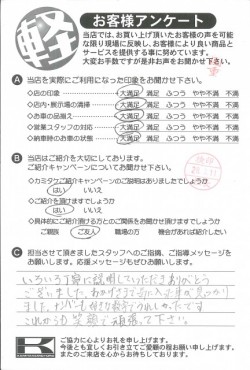 軽
お客様アンケート
当店では、お買い上げ頂いたお客様の声を可能
な限り現場に反映し、お客様により良い商品と
サービスを提供する事に努めています。
大変お手数ですが是非お声をお聞かせ下さい。
A 当店を実際にご利用になった印象をお聞かせ下さい。
◇店の印象 大満足 満足 ふつう やや不満 不満
◇店内・展示場の清掃 大満足 満足 ふつう やや不満 不満
◇お車の品揃え 大満足 満足 ふつう やや不満 不満
◇営業スタッフの対応 大満足 満足 ふつう やや不満 不満
◇納車時のお車の状態 大満足 満足 ふつう やや不満 不満
B 当店はご紹介を大切にしております。
ご紹介キャンペーンについてお聞かせ下さい。
◇カミタケご紹介キャンペーンのご説明はありましたでしょうか
はい いいえ
◇ご紹介を頂けますでしょうか
はい いいえ
◇具体的にご紹介頂ける方とのご関係をお聞かせ下さい
ご親族 ご友人 職場の方 機会があれば紹介したい
C 担当させて頂きましたスタッフへのご指摘、ご指導メッセージを
お願いします。応援メッセージもぜひお願いします。
いろいろ丁寧に説明していただきありがとう
ございました。
これからも笑顔で頑張って下さい。
K
ご協力に心よりお礼を申し上げます。
今後とも宜しくお引き立てご愛顧の程お願い申し上げます。
またのご来店を心からお待ちしております。